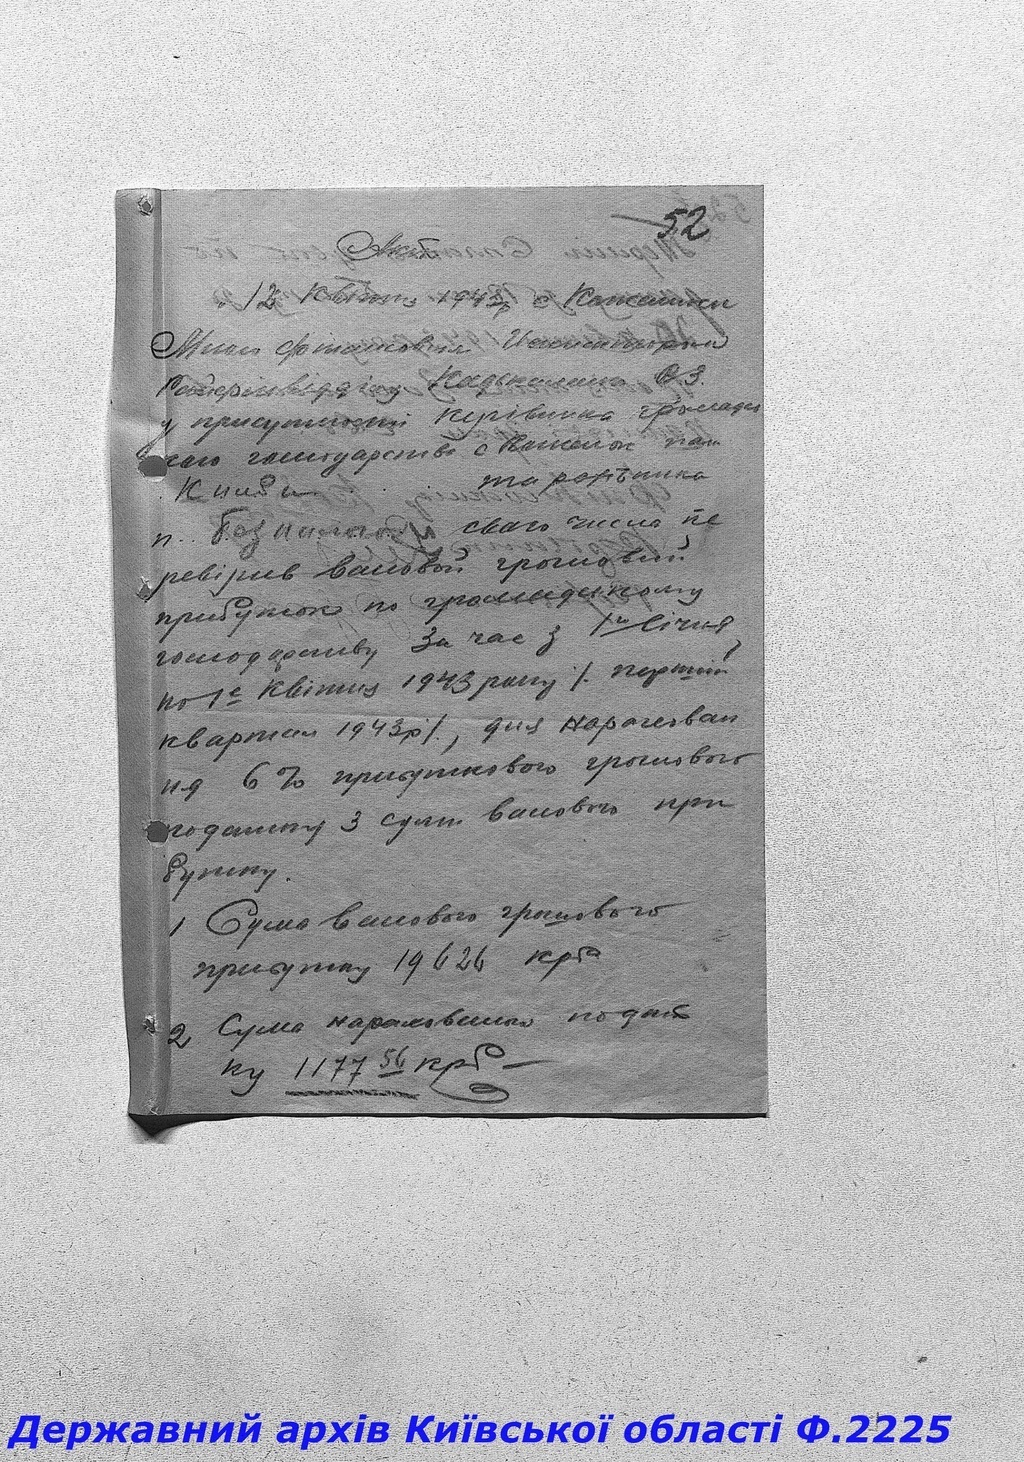 52
Акт
12 Квітня 1943 р с
Мною фінансовим Инспектором
у присутності Керівника громадсь
кого господарства с
та рахівника
п. свого числа пе
ревірив валовой грошовий
прибуток по громадському
господарству За час з 1го Січня
по 1е Квітня 1943 року /. перший
квартал 1943 р /., для нарахован
ня 6% прибуткового грошового
податку з суми валового при
бутку.
1 Сума валового грошового
прибутку 19626 крб
2 Сума нарахованого подат
ку 1177 56 крб —
Державний архів Київської області Ф.2225